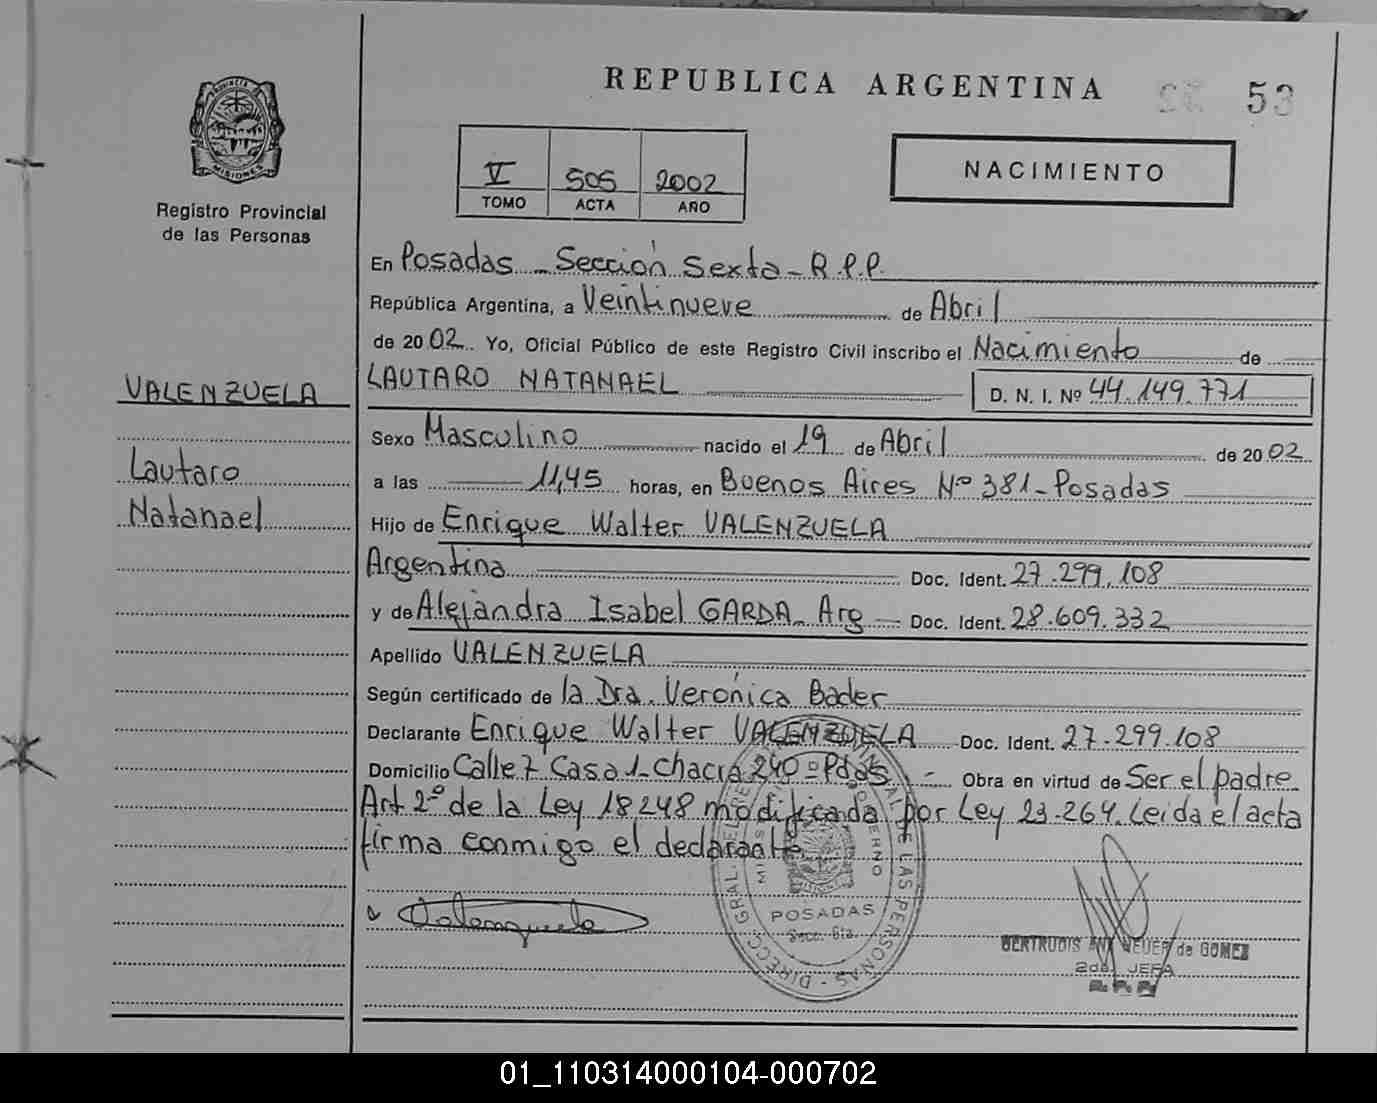 REPUBLICA ARGENTINA
53
PROVINCIA DE
MISIONES
Registro Provincial
de las Personas
V 505 2002
TOMO ACTA AÑO
NACIMIENTO
En Posadas - Sección Sexta - R.P.P.
República Argentina, a Veintinueve de Abril
de 2002. Yo, Oficial Público de este Registro Civil inscribo el Nacimiento de
LAUTARO NATANAEL D. N. I. Nº 44.149.771
VALENZUELA
Lautaro
Natanael
Sexo Masculino nacido el 19 de Abril de 2002
a las 11,45 horas, en Buenos Aires Nº 381 - Posadas
Hijo de Enrique Walter VALENZUELA
Argentina Doc. Ident. 27.299.108
y de Alejandra Isabel GARDA - Arg Doc. Ident. 28.609.332
Apellido VALENZUELA
Según certificado de la Dra. Verónica Bader
Declarante Enrique Walter VALENZUELA Doc. Ident. 27.299.108
Domicilio Calle 7 Casa 1 - Chacra 240 - Pdas - Obra en virtud de Ser el padre
Art 2º de la Ley 18248 modificada por Ley 23.264. Leida el acta
firma conmigo el declarante
Valenzuela
POSADAS
Secc. 6ta.
DE LAS PERSONAS - DIRECC. GRAL.
GERTRUDIS de GOMEZ
2da. JEFA
01_110314000104-000702